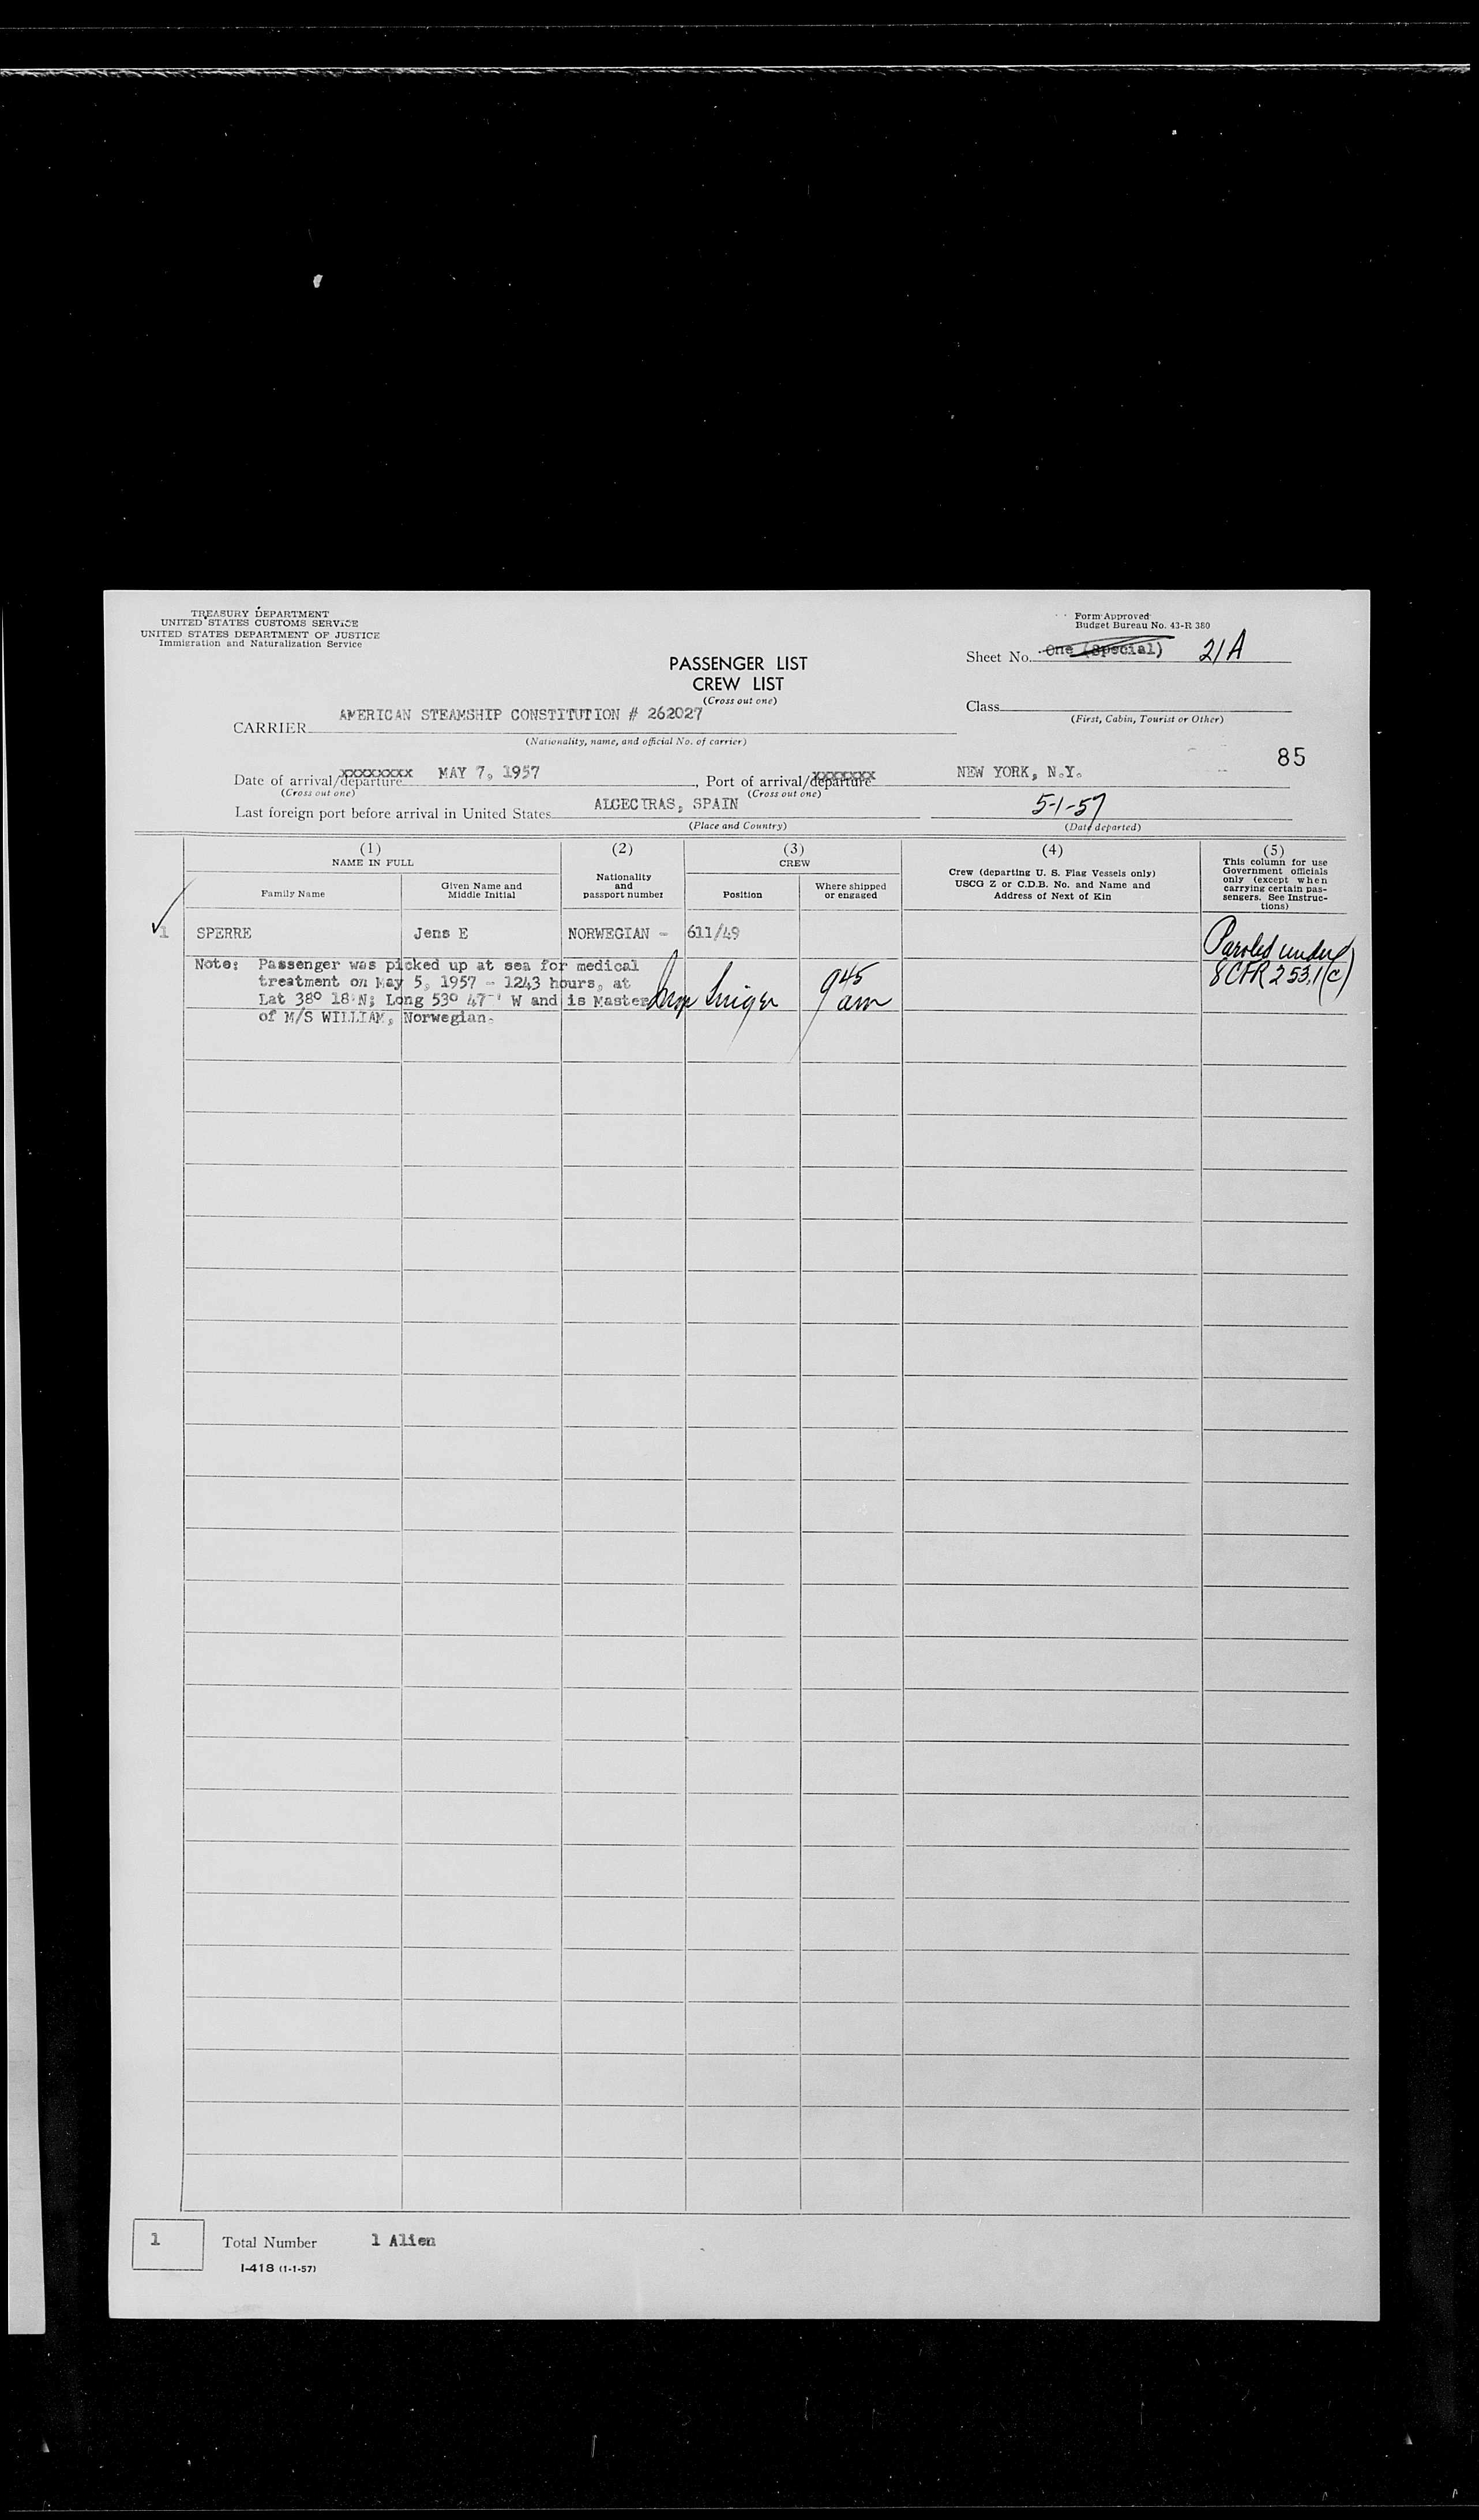 TREASURY DEPARTMENT
UNITED STATES CUSTOMS SERVICE
UNITED STATES DEPARTMENT OF JUSTICE
Immigration and Naturalization Service
Form Approved
Budget Bureau No. 43-R 380
Sheet No. One (Special) 21A
PASSENGER LIST
CREW LIST
(Cross out one)
Class
(First, Cabin, Tourist or Other)
CARRIER AMERICAN STEAMSHIP CONSTITUTION # 262027
(Nationality, name, and official No. of carrier)
85
Date of arrival/departure xxxxxxxx MAY 7, 1957, Port of arrival/departure xxxxxxx NEW YORK, N.Y.
(Cross out one) (Cross out one)
Last foreign port before arrival in United States ALGECIRAS, SPAIN 5-1-57
(Place and Country) (Date departed)
(1)
NAME IN FULL
Family Name
Given Name and
Middle Initial
(2)
Nationality
and
passport number
(3)
CREW
Position
Where shipped
or engaged
(4)
Crew (departing U. S. Flag Vessels only)
USCG Z or C.D.B. No. and Name and
Address of Next of Kin
(5)
This column for use
Government officials
only (except when
carrying certain pas-
sengers. See Instruc-
tions)
1 SPERRE Jens E NORWEGIAN - 611/49
Paroled under
8 CFR 253.1(c)
Note: Passenger was picked up at sea for medical
treatment on May 5, 1957 - 1243 hours, at
Lat 38° 18' N; Long 53° 47' W and is Master
of M/S WILLIAM, Norwegian.
9 45
am
1 Total Number 1 Alien
I-418 (1-1-57)